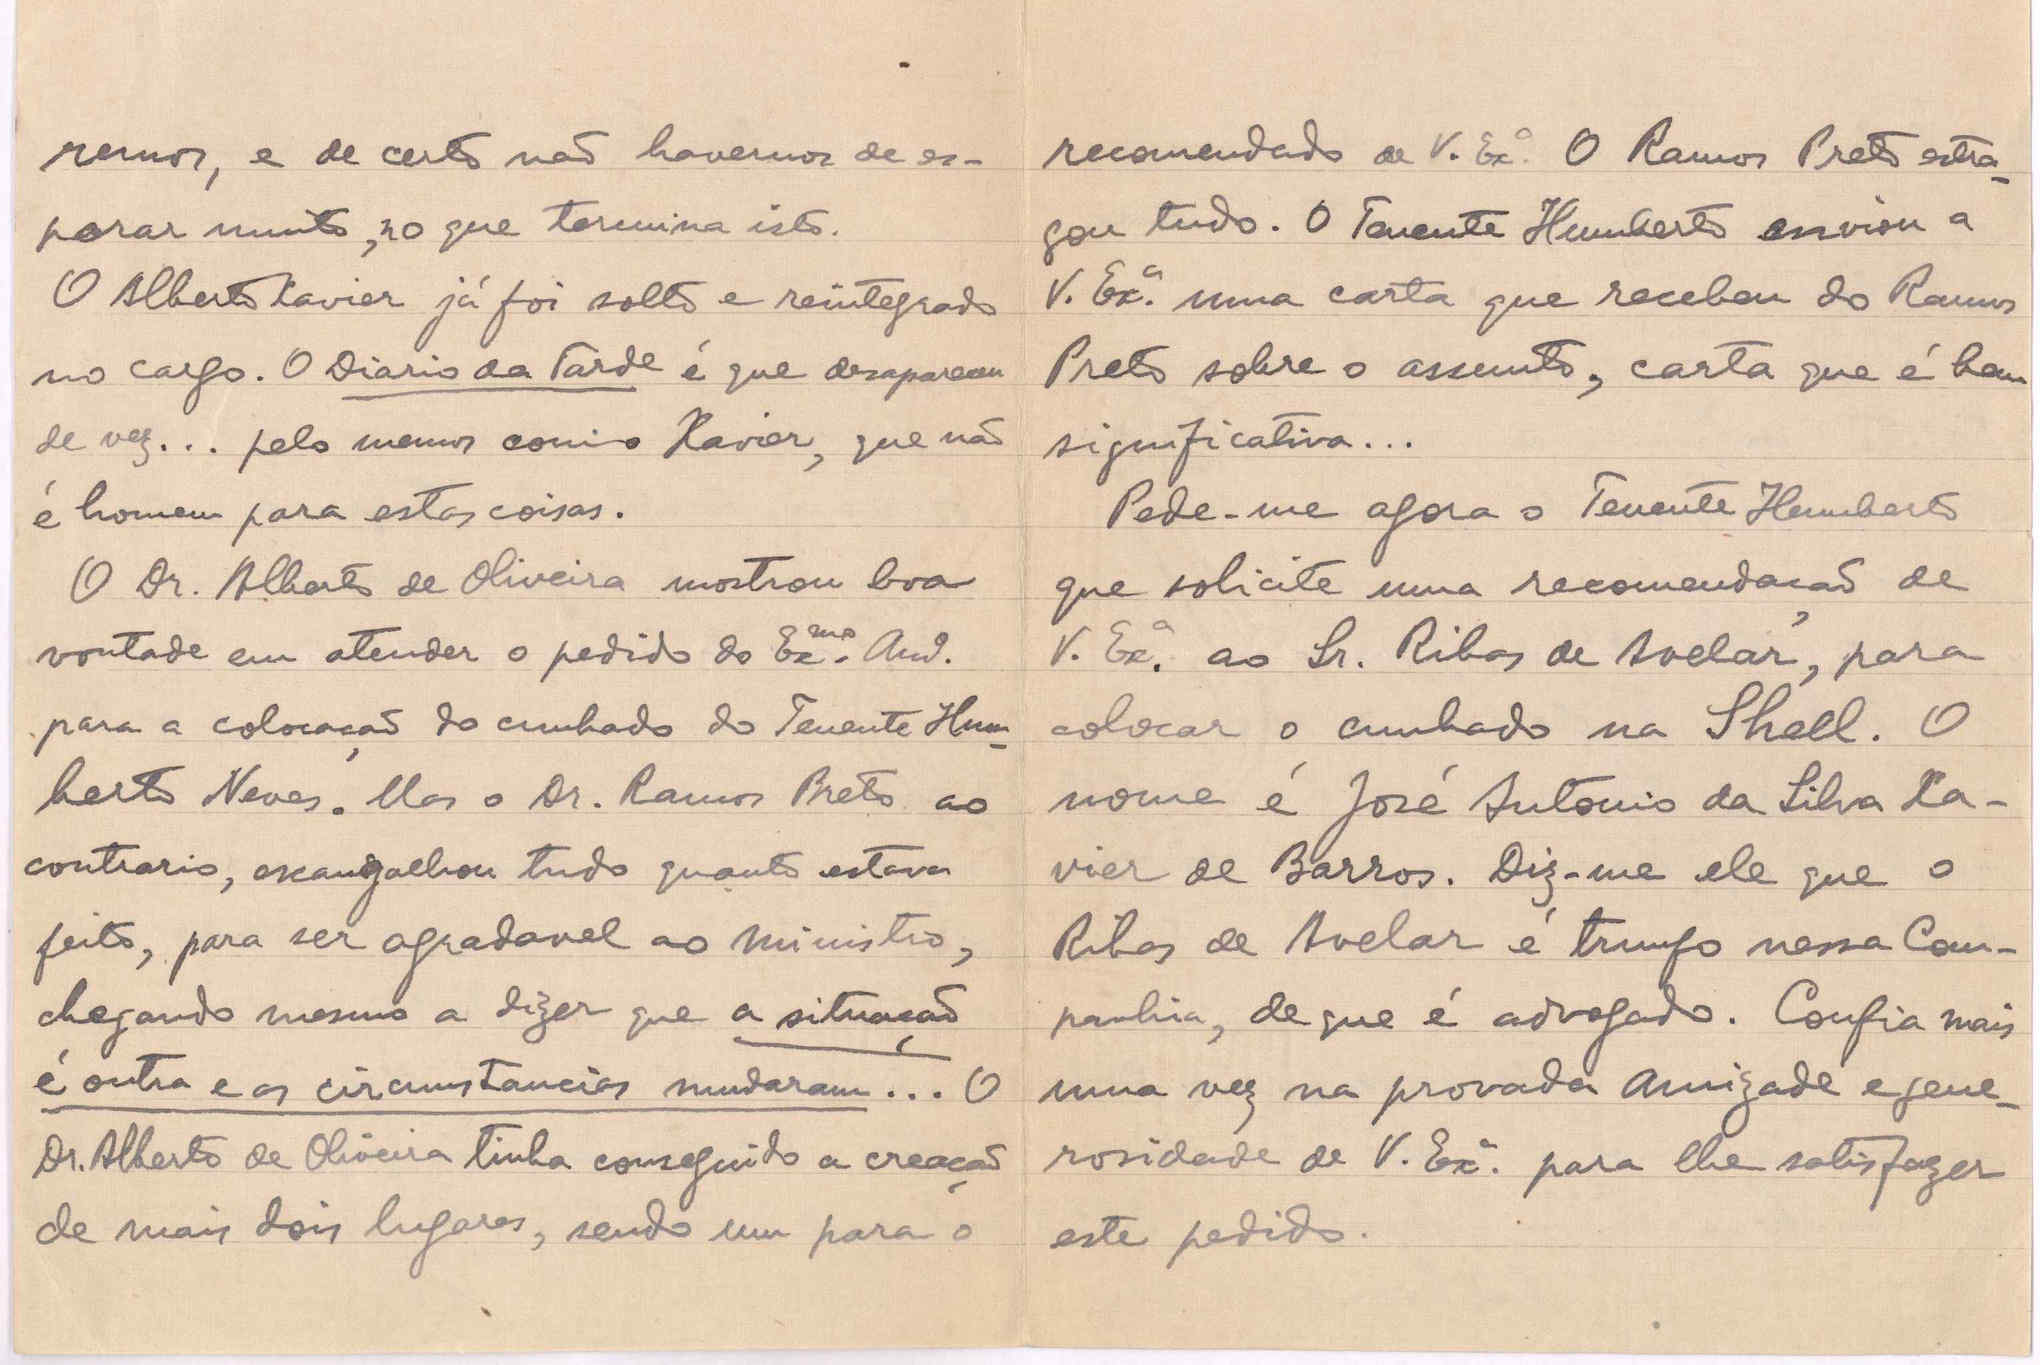 remos, e de certo não havemos de es-
perar muito, no que termina isto.
O Alberto Xavier já foi solto e reintegrado
no cargo. O Diario da Tarde é que desapareceu
de vez... pelo menos com o Xavier, que não
é homem para estas coisas.
O Dr. Alberto de Oliveira mostrou boa
vontade em atender o pedido do Exmo. Am.
para a colocação do cunhado do Tenente Hum-
berto Neves. Mas o Dr. Ramos Preto ao
contrario, escangalhou tudo quanto estava
feito, para ser agradavel ao Ministro,
chegando mesmo a dizer que a situação
é outra e as circunstancias mudaram... O
Dr. Alberto de Oliveira tinha conseguido a creação
de mais dois lugares, sendo um para o
recomendado de V. Exª. O Ramos Preto estra-
gou tudo. O Tenente Humberto enviou a
V. Exª. uma carta que recebeu do Ramos
Preto sobre o assunto, carta que é bem
significativa...
Pede-me agora o Tenente Humberto
que solicite uma recomendação de
V. Exª. ao Sr. Ribas de Avelar, para
colocar o cunhado na Shell. O
nome é José Antonio da Silva Xa-
vier de Barros. Diz-me ele que o
Ribas de Avelar é trunfo nessa Com-
panhia, de que é advogado. Confia mais
uma vez na provada Amizade e gene-
rosidade de V. Exª. para lhe satisfazer
este pedido.